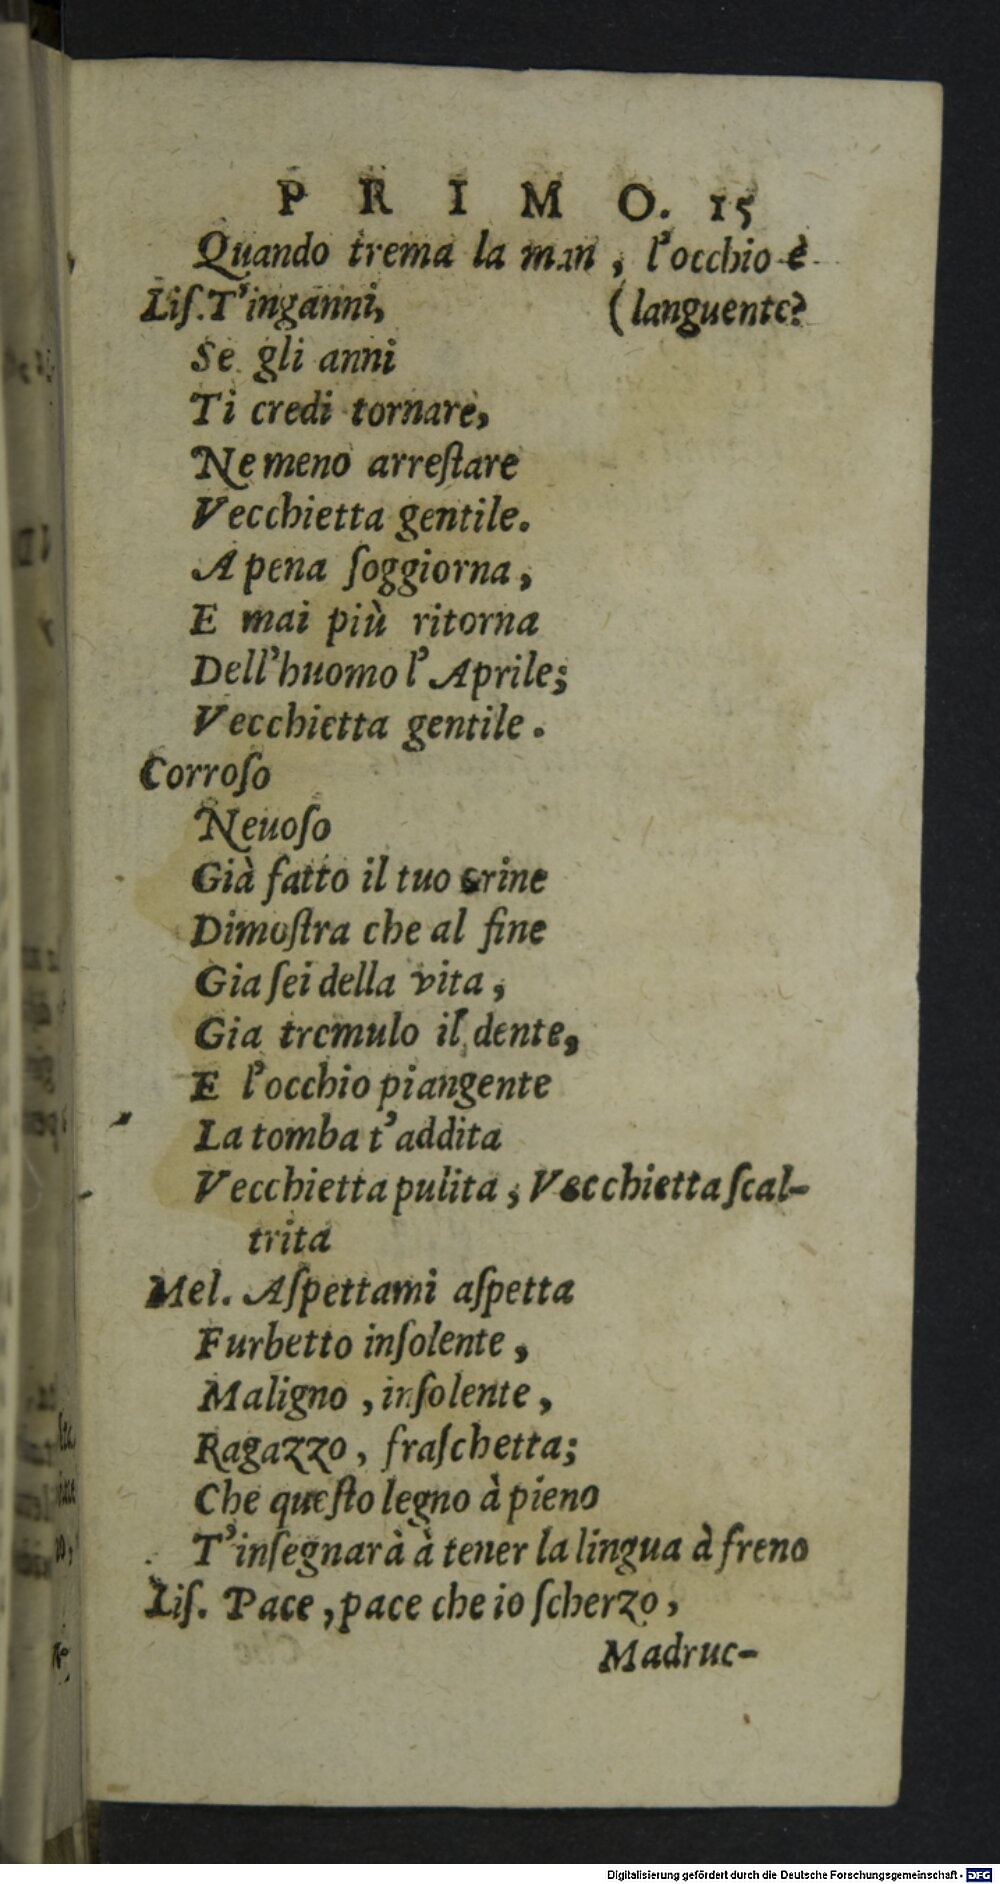 PRIMO. 15
Quando trema la man, l'occhio è
Liſ. T'inganni, (languente?
Se gli anni
Ti credi tornare,
Ne meno arreſtare
Vecchietta gentile.
A pena ſoggiorna,
E mai più ritorna
Dell'huomo l'Aprile;
Vecchietta gentile.
Corroſo
Neuoſo
Già fatto il tuo crine
Dimoſtra che al fine
Gia ſei della vita,
Gia tremulo il dente,
E l'occhio piangente
La tomba t'addita
Vecchietta pulita, Vecchietta ſcal-
trita
Mel. Aſpettami aſpetta
Furbetto inſolente,
Maligno, inſolente,
Ragazzo, fraſchetta;
Che queſto legno à pieno
T'inſegnarà à tener la lingua à freno
Liſ. Pace, pace che io ſcherzo,
Madruc-
Digitalisierung gefördert durch die Deutsche Forschungsgemeinschaft - DFG